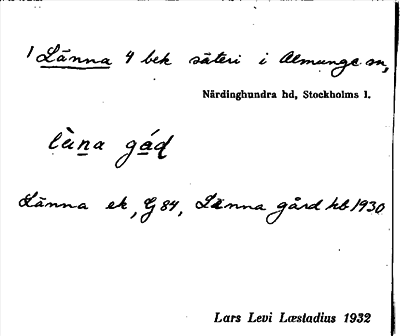 1 Länna 4 bek säteri i Almunge sn,
Närdinghundra hd, Stockholms l.
lὰna gád
Länna ek, G 84, Länna gård kb 1930
Lars Levi Læstadius 1932